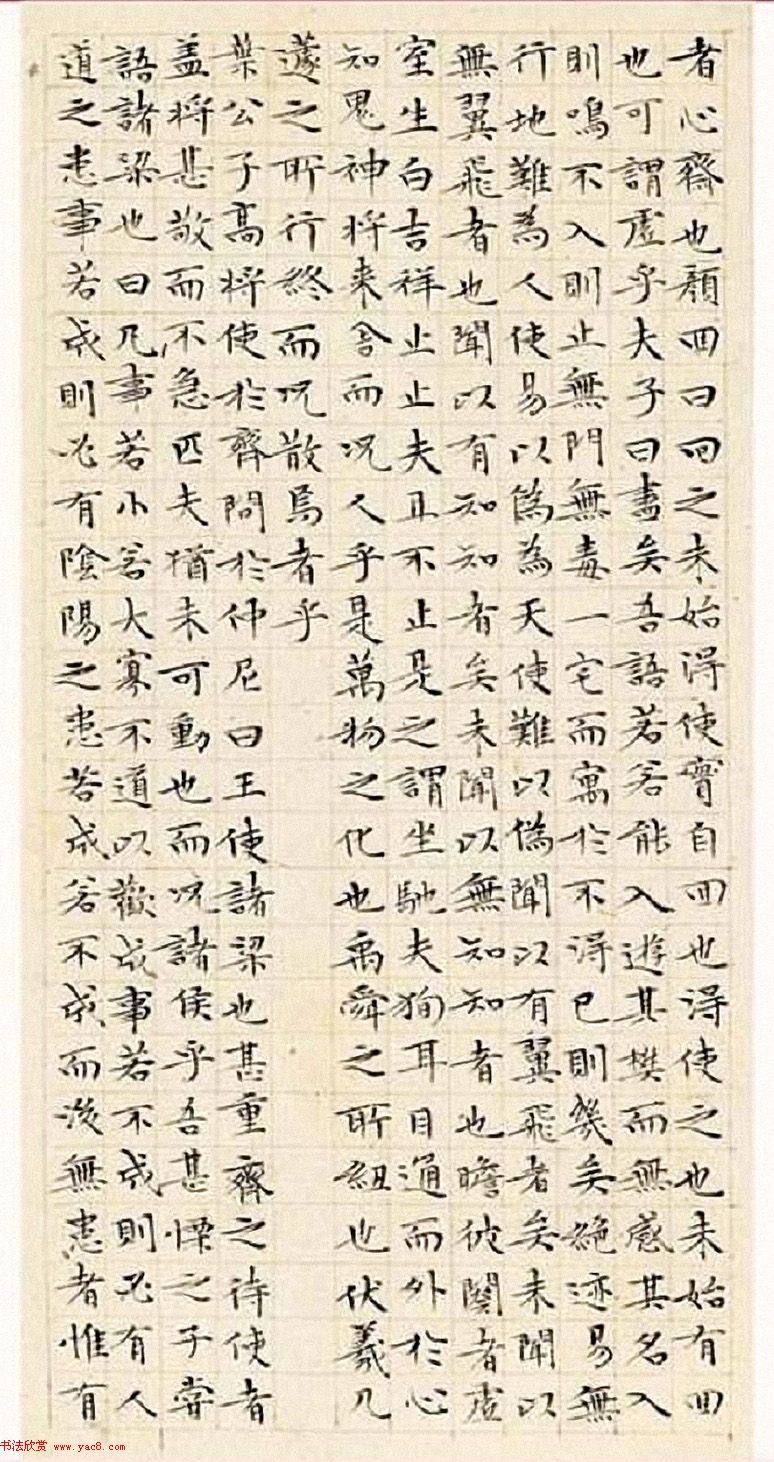 者心齋也顏回曰回之未始得使實自回也得使之也未始有回
也可謂虛乎夫子曰盡矣吾語若若能入遊其樊而無感其名入
則鳴不入則止無門無毒一宅而寓於不得已則幾矣絕迹易無
行地難為人使易以偽為天使難以偽聞以有翼飛者矣未聞以
無翼飛者也聞以有知知者矣未聞以無知知者也瞻彼闋者虛
室生白吉祥止止夫且不止是之謂坐馳夫狥耳目通而外於心
知鬼神將來舍而況人乎是萬物之化也禹舜之所紐也伏羲几
蘧之所行終而況散焉者乎
葉公子高將使於齊問於仲尼曰王使諸梁也甚重齊之待使者
盖將甚敬而不急匹夫猶未可動也而況諸侯乎吾甚慄之子嘗
語諸梁也曰凡事若小若大寡不道以歡成事若不成則必有人
道之患事若成則必有陰陽之患若成若不成而後無患者惟有
书法欣赏 www.yac8.com